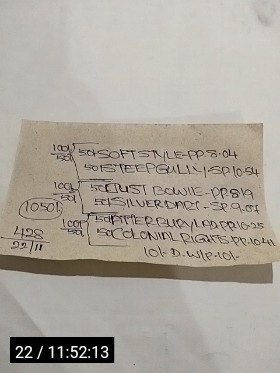 100/50/ 50/SOFTSTYLE-PP.8.04
50/STEEPGULLY-SP.10.54
100/50/ 50/JUST BOWIE-PP.8.19
50/SILVER DART-SP.9.07
1050/
100/50/ 50/ATTERBURY LAD-PP.10.25
50/COLONIAL RIGHTS-PP.10.40
428
22/11
10/-D.W/P.10/-
22 / 11:52:13